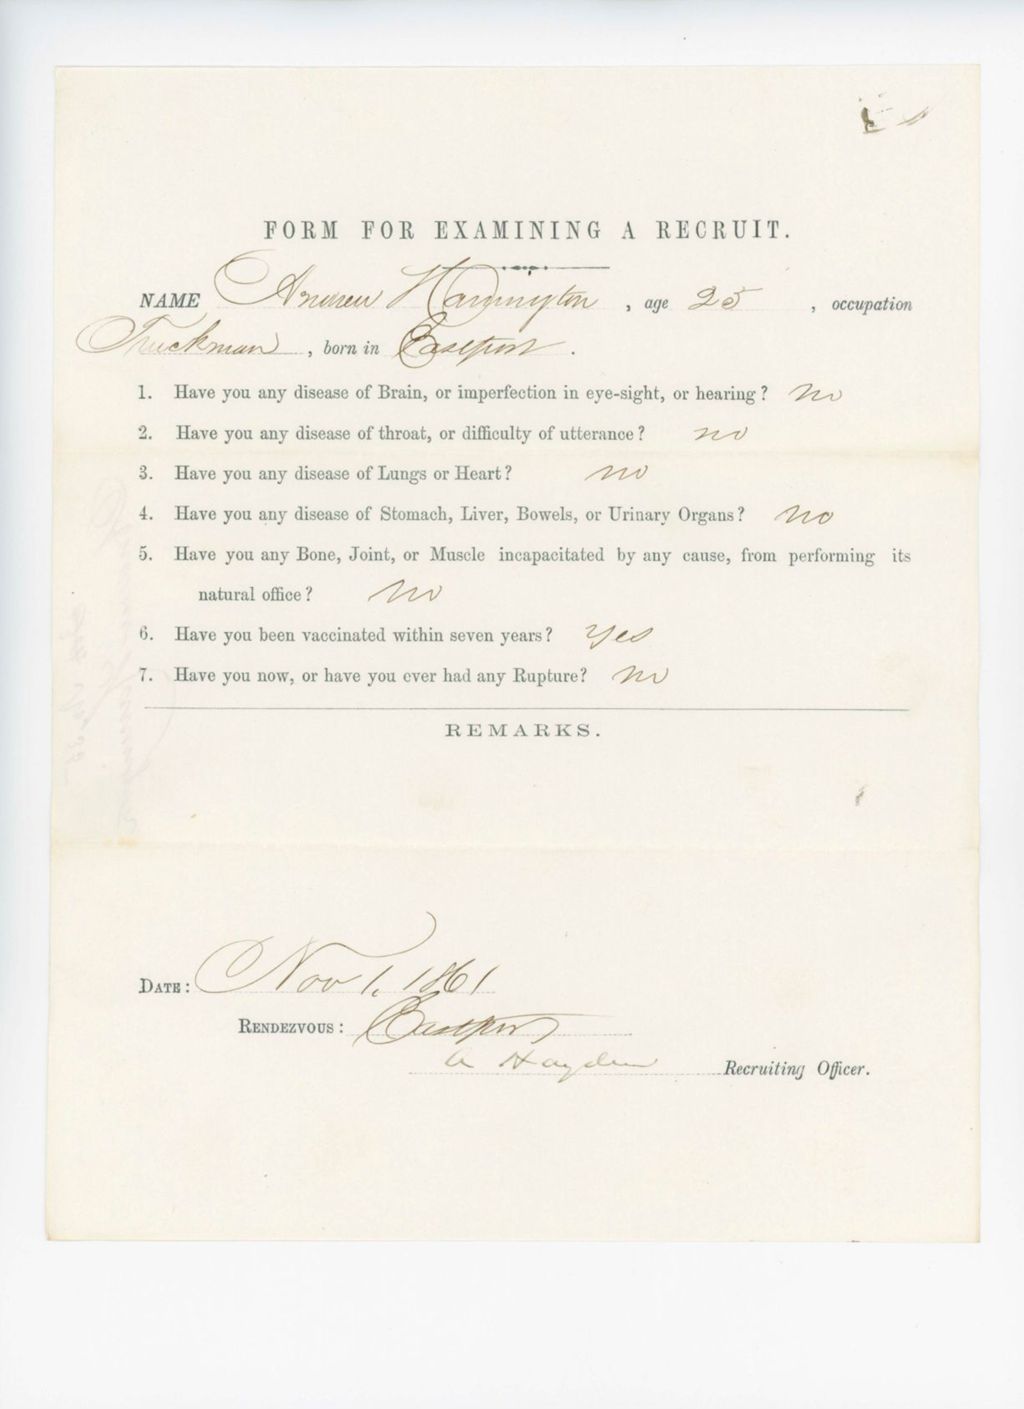 FORM FOR EXAMINING A RECRUIT.
NAME Andrew Harrington, age 25, occupation
Truckman, born in Eastport.
1. Have you any disease of Brain, or imperfection in eye-sight, or hearing? no
2. Have you any disease of throat, or difficulty of utterance? no
3. Have you any disease of Lungs or Heart? no
4. Have you any disease of Stomach, Liver, Bowels, or Urinary Organs? No
5. Have you any Bone, Joint, or Muscle incapacitated by any cause, from performing its
natural office? No
6. Have you been vaccinated within seven years? Yes
7. Have you now, or have you ever had any Rupture? No
REMARKS.
DATE: Nov 1, 1861
RENDEZVOUS: Eastport
A Hayden Recruiting Officer.